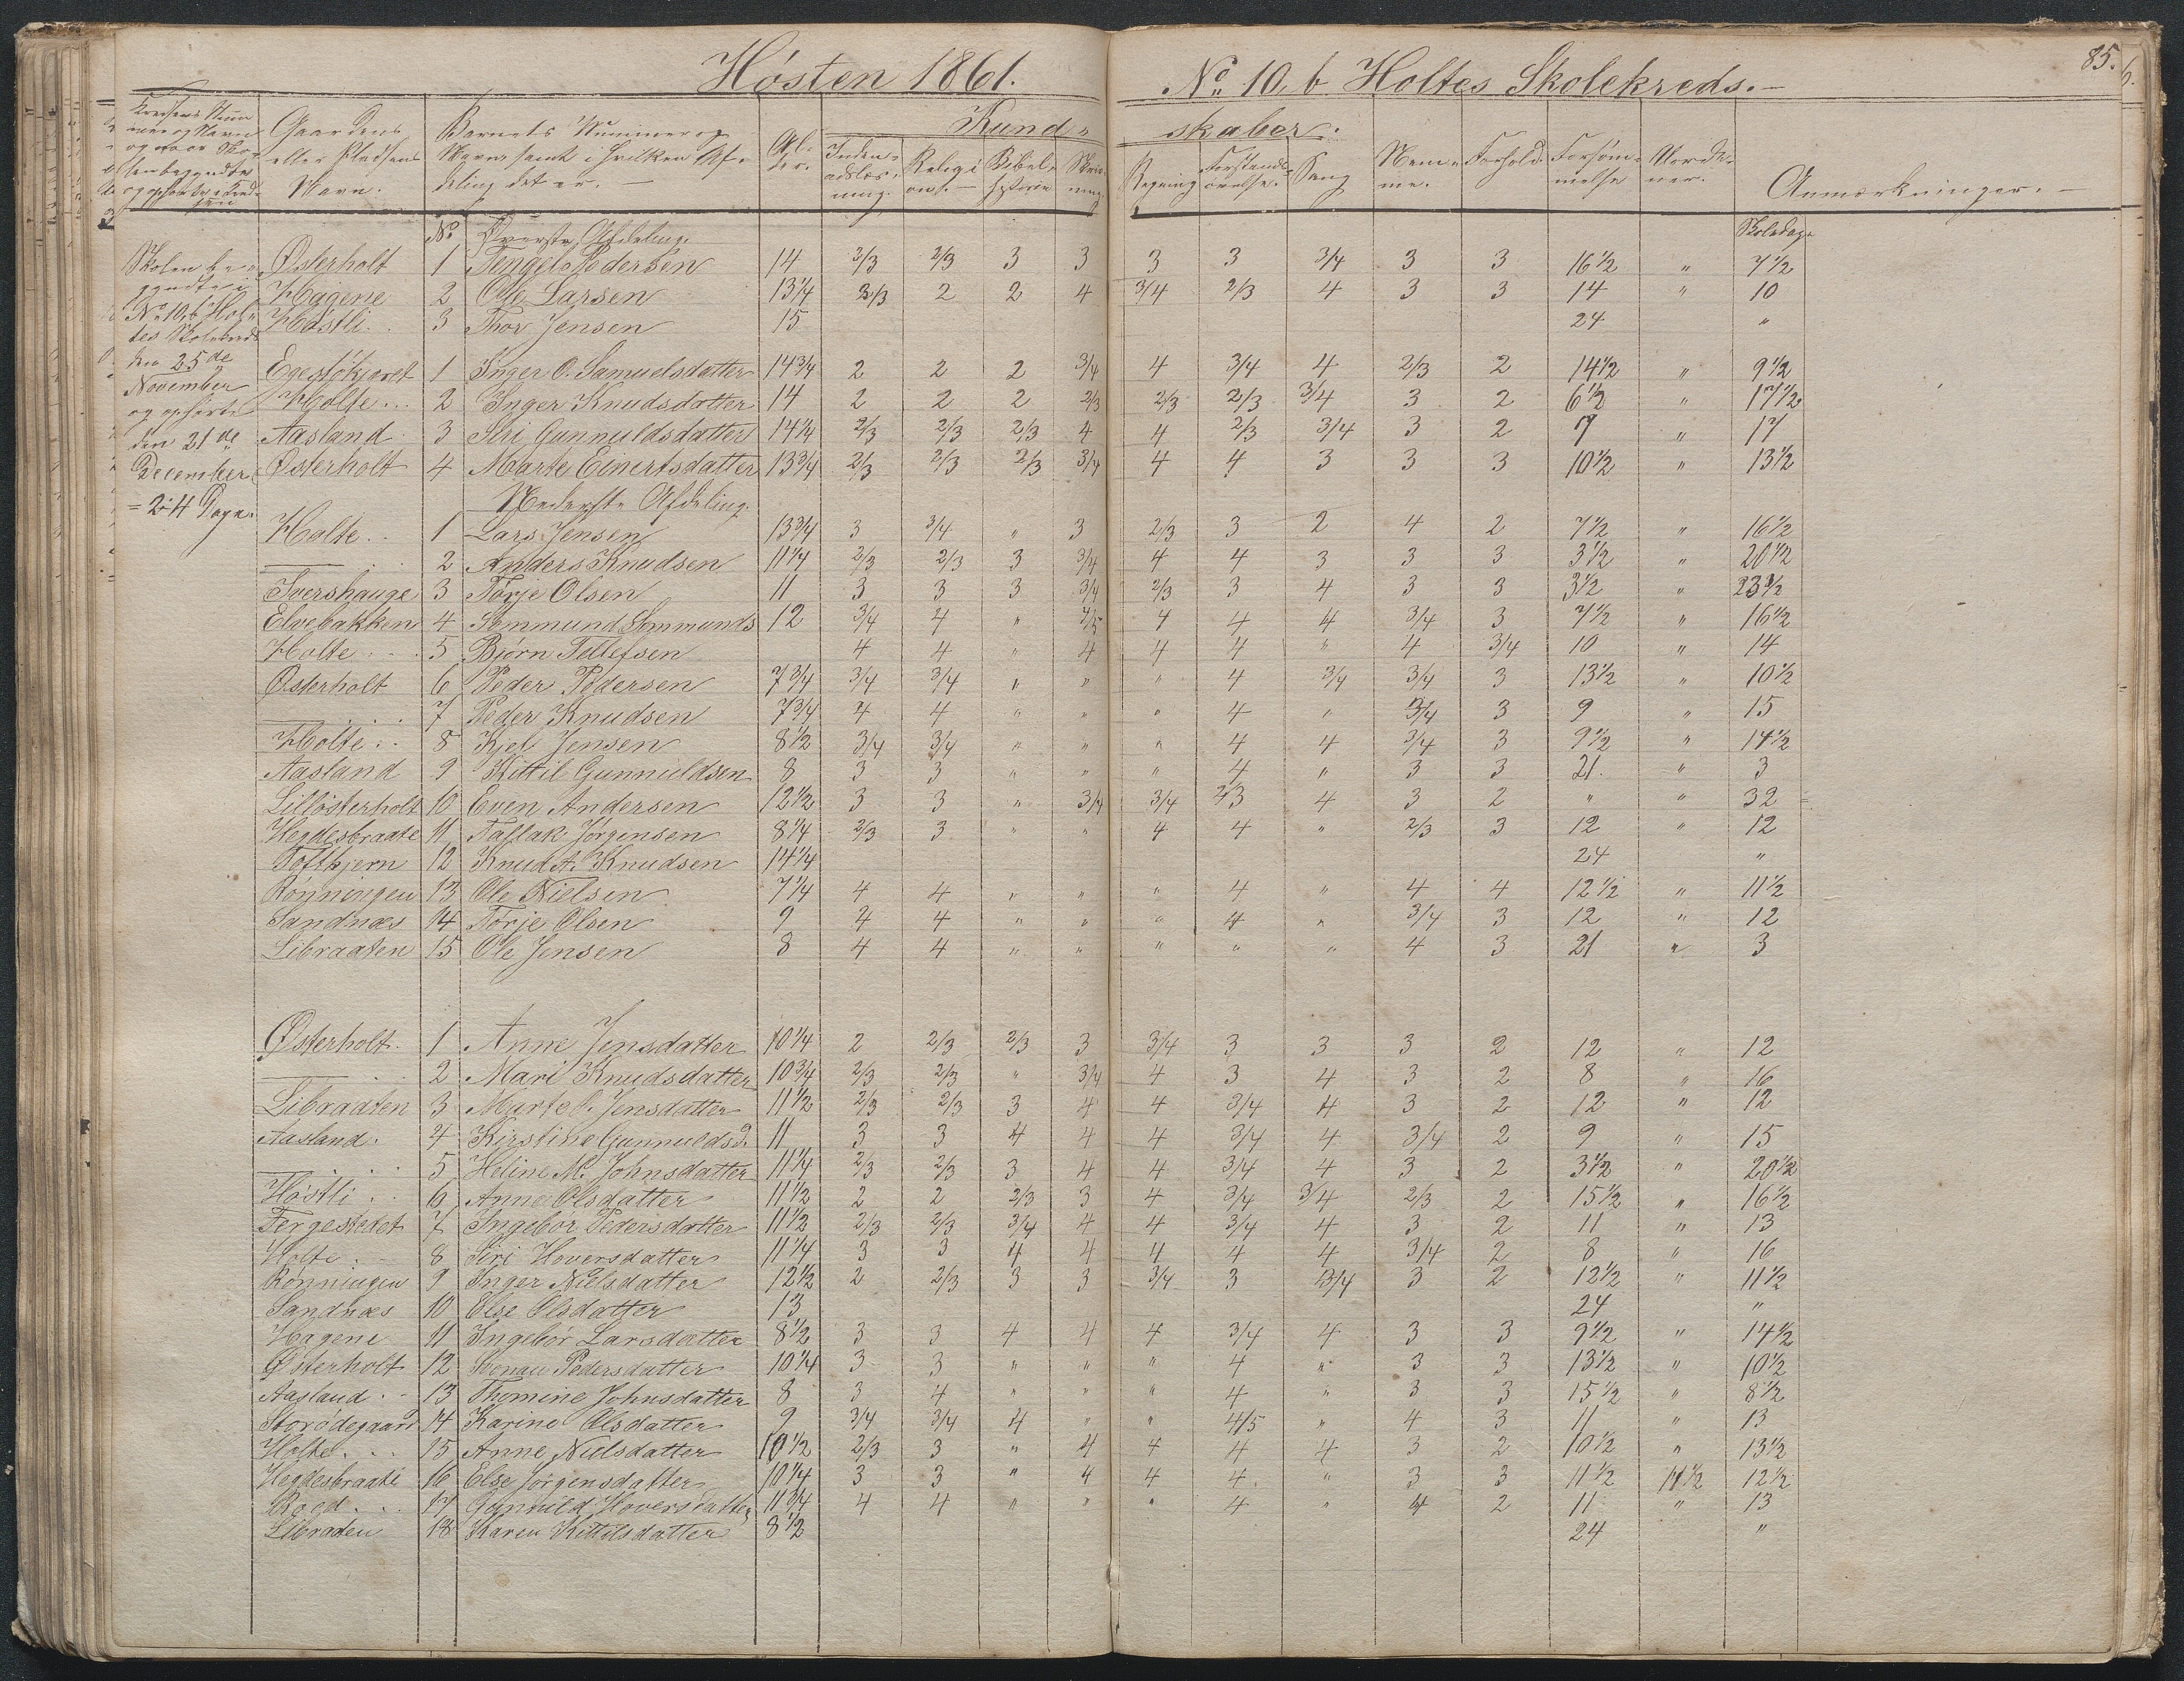 Høsten 1861.
No. 10, b Holtes Skolekreds.
85.
Gaardens eller Pladsens Navn.
Barnets Nummer og Navn samt i hvilken Afdeling det er.
Alder.
Kundskaber.
Indenadslæsning.
Religion.
Bibelhistorie
Skrivning
Regning
Forstandsøvelse.
Sang
Nemme.
Forhold.
Forsømmelse
Anmærkninger.
Skolen begyndte i No 10, b Holtes Skolekreds den 25de November og ophørte den 21de December = 24 Dage.
No. Øverste Afdeling.
Skoledage
Østerholt 1 Tengel Pedersen 14 2/3 2/3 3 3 3 3 3/4 3 3 16 1/2 " 7 1/2
Hagene 2 Ole Larsen 13 1/4 2/3 2 2 4 3/4 2/3 4 3 3 14 " 10
Høstli 3 Thor Jensen 15 24 "
Egestökjæret 1 Inger O. Samuelsdatter 14 3/4 2 2 2 3/4 4 3/4 4 2/3 2 14 1/2 " 9 1/2
Holte 2 Inger Knudsdatter 14 2 2 2 2/3 2/3 2/3 3/4 3 2 6 1/2 " 17 1/2
Aasland 3 Siri Gunnuldsdatter 14 1/4 2/3 2/3 2/3 4 4 2/3 3/4 3 2 7 " 17
Østerholt 4 Marte Einertsdatter 13 3/4 2/3 2/3 2/3 3/4 4 4 3 3 3 10 1/2 " 13 1/2
Nederste Afdeling.
Holte 1 Lars Jensen 13 3/4 3 3/4 " 3 2/3 3 2 4 2 7 1/2 " 16 1/2
2 Anders Knudsen 11 1/4 2/3 2/3 3 3/4 4 4 3 3 3 3 1/2 " 20 1/2
Ivershauge 3 Tørje Olsen 11 3 3 3 3/4 2/3 3 4 3 3 3 1/2 " 23 1/2
Elvebakken 4 Sommund Sommunds 12 3/4 4 " 4/5 4 4 4 3/4 3 7 1/2 " 16 1/2
Holte 5 Bjørn Tellefsen 4 4 " 4 4 4 " 4 3/4 10 " 14
Østerholt 6 Peder Pedersen 7 3/4 3/4 3/4 " " " 4 3/4 3/4 3 13 1/2 " 10 1/2
7 Peder Knudsen 7 3/4 4 4 " " " 4 " 3/4 3 9 " 15
Holte 8 Kjel Jensen 8 1/2 3/4 3/4 " " " 4 4 3/4 3 9 1/2 " 14 1/2
Aasland 9 Kittil Gunnuldsen 8 3 3 " " " 4 " 3 3 21. " 3
Lilløsterholt 10 Even Andersen 12 1/2 3 3 " 3/4 3/4 3 4 3 2 " " 32
Hegdesbraate 11 Taflak Jørgensen 8 1/4 2/3 3 " " 4 4 " 2/3 3 12 " 12
Toftkjern 12 Knud A. Knudsen 14 1/4 24 "
Rønningen 13 Ole Nielsen 7 1/4 4 4 " " " 4 " 4 4 12 1/2 " 11 1/2
Sandnæs 14 Tørje Olsen 9 4 4 " " " 4 " 3/4 3 12 " 12
Libraaten 15 Ole Jensen 8 4 4 " " " " " 4 3 21 " 3
Østerholt 1 Anne Jensdatter 10 1/4 2 2/3 2/3 3 3/4 3 3 3 2 12 " 12
2 Mari Knudsdatter 10 3/4 2/3 2/3 " 3/4 4 3 4 3 2 8 " 16
Libraaten 3 Marte O. Jensdatter 11 1/2 2/3 2/3 3 4 4 3/4 4 3 2 12 " 12
Aasland. 4 Kirstine Gunnuldsd. 11 3 3 4 4 4 3/4 4 3/4 2 9 " 15
5 Heline M. Johnsdatter 11 1/4 2/3 2/3 3 4 4 3/4 4 3 2 3 1/2 " 20 1/2
Høstli 6 Anne Olsdatter 11 1/2 2 2 2/3 3 4 3/4 3/4 2/3 2 15 1/2 " 16 1/2
Fergestedet 7 Ingebor Pedersdatter 11 1/2 2/3 2/3 3/4 4 4 3/4 4 3 2 11 " 13
Holte 8 Siri Hoversdatter 11 1/4 3 3 4 4 4 4 4 3/4 2 8 " 16
Rønningen 9 Inger Nielsdatter 12 1/2 2 2/3 3 3 3/4 3 3/4 3 2 12 1/2 " 11 1/2
Sandnæs 10 Else Olsdatter 13 24 "
Hagene 11 Ingebor Larsdatter 8 1/2 3 3 4 4 4 3/4 4 3 3 9 1/2 " 14 1/2
Østerholt 12 Pedersdatter 10 1/4 3 3 " " " 4 " 3 3 13 1/2 " 10 1/2
Aasland 13 Thomine Johnsdatter 8 3 4 " " " 4 " 3 3 15 1/2 " 8 1/2
Storødegaard 14 Karine Olsdatter 9 3/4 3/4 4 " " 4/5 " 4 3 11 " 13
Holte 15 Anne Nielsdatter 10 1/2 2/3 3 " 4 4 4 4 3 2 10 1/2 " 13 1/2
Hegdesbraate 16 Else Jørgensdatter 10 1/4 3 3 " 4 4 4 " 3 3 11 1/2 11 1/2 12 1/2
Roed 17 Gunnild Hoversdatter 11 3/4 4 4 " " " 4 " 4 2 11 " 13
Libraden 18 Karen Kittilsdatter 8 1/2 24 "